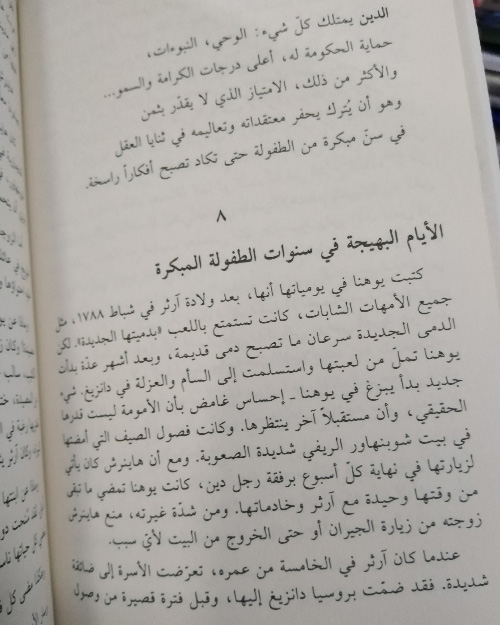 الدين يمتلك كلّ شيء: الوحي، النبوءات،
حماية الحكومة له، أعلى درجات الكرامة والسمو...
والأكثر من ذلك، الامتياز الذي لا يقدّر بثمن
وهو أن يُترك يحفر معتقداته وتعاليمه في ثنايا العقل
في سنّ مبكرة من الطفولة حتى تكاد تصبح أفكاراً راسخة.
٨
الأيام البهيجة في سنوات الطفولة المبكرة
كتبت يوهنا في يومياتها أنها، بعد ولادة آرثر في شباط ١٧٨٨، مثل
جميع الأمهات الشابات، كانت تستمتع باللعب «بدميتها الجديدة». لكن
الدمى الجديدة سرعان ما تصبح دمى قديمة، وبعد أشهر عدّة بدأت
يوهنا تملّ من لعبتها واستسلمت إلى السأم والعزلة في دانزيغ. شيء
جديد بدأ يبزغ في يوهنا ـ إحساس غامض بأن الأمومة ليست قدرها
الحقيقي، وأن مستقبلاً آخر ينتظرها. وكانت فصول الصيف التي أمضتها
في بيت شوبنهاور الريفي شديدة الصعوبة. ومع أن هاينرش كان يأتي
لزيارتها في نهاية كلّ أسبوع برفقة رجل دين، كانت يوهنا تمضي ما تبقى
من وقتها وحيدة مع آرثر وخادماتها. ومن شدّة غيرته، منع هاينرش
زوجته من زيارة الجيران أو حتى الخروج من البيت لأيّ سبب.
عندما كان آرثر في الخامسة من عمره، تعرّضت الأسرة إلى ضائقة
شديدة. فقد ضمّت بروسيا دانزيغ إليها، وقبل فترة قصيرة من وصول